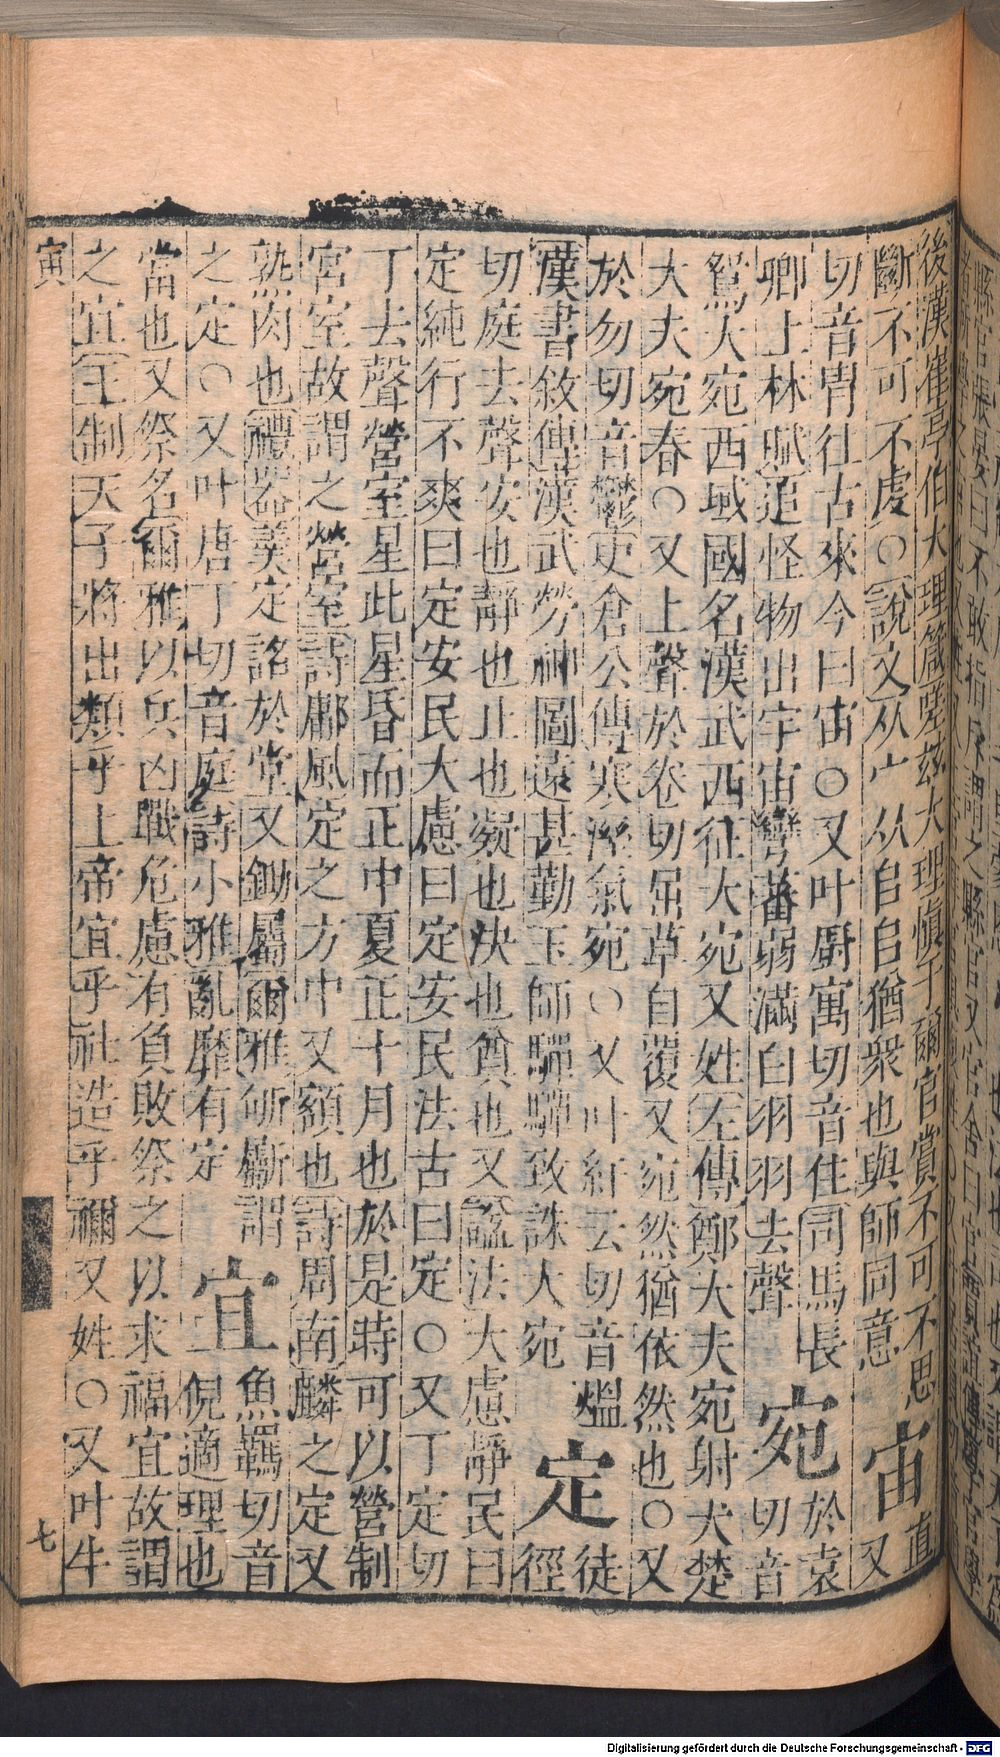 後漢崔亭伯大理箴嗟茲大理愼于爾官賞不可不思
斷不可不虔○說文从宀从㠯㠯猶衆也與師同意 宙 直又
切音胄往古來今曰宙○又叶厨寓切音住司馬長
卿上林賦追怪物出宇宙彎蕃弱滿白羽羽去聲 宛 於袁切音
鴛大宛西域國名漢武西征大宛又姓左傳鄭大夫宛射犬楚
大夫宛春○又上聲於卷切屈草自覆又宛然猶依然也○又
於勿切音鬱史倉公傳寒溼氣宛○又叶紆云切音熅
漢書敘傳漢武勞神圖遠甚勤王師驒驒致誅大宛 定 徒徑
切庭去聲安也靜也止也凝也决也貟也又諡法大慮靜民曰
定純行不爽曰定安民大慮曰定安民法古曰定○又丁定切
丁去聲營室星此星昏而正中夏正十月也於是時可以營制
宮室故謂之營室詩鄘風定之方中又額也詩周南麟之定又
熟肉也禮器羹定詔於堂又鋤屬爾雅斫斸謂
之定○又叶唐丁切音庭詩小雅亂靡有定 宜 魚羈切音倪適理也
當也又祭名爾雅以兵凶戰危慮有負敗祭之以求福宜故謂
之宜王制天子將出類乎上帝宜乎社造乎禰又姓○又叶牛
寅
七
Digitalisierung gefördert durch die Deutsche Forschungsgemeinschaft - DFG